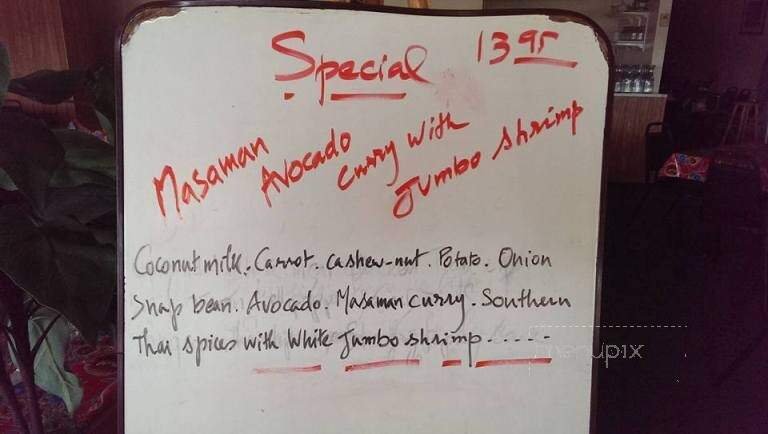 Special 13 95
Masaman Avocado curry with Jumbo shrimp
Coconut milk. Carrot. cashew-nut. Potato. Onion
Snap bean. Avocado. Masaman curry. Southern
Thai spices with White Jumbo shrimp......
menupix